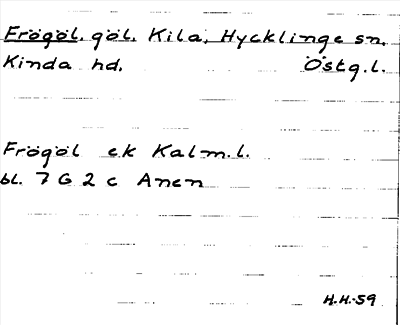 Frögöl, göl, Kila, Hycklinge sn.
Kinda hd. Östg.l.
Frögöl ek Kalm.l.
bl. 7 G 2 c Anen
H.H.-59